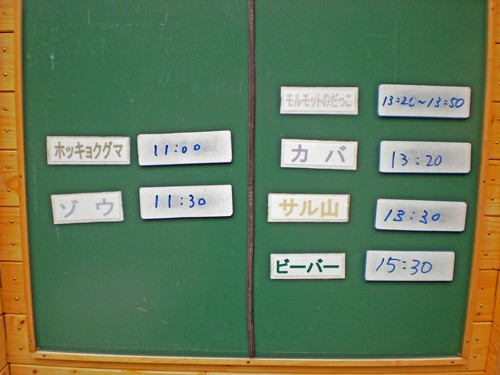 ホッキョクグマ 11:00
ゾウ 11:30
モルモットのだっこ 13:20～13:50
カバ 13:20
サル山 13:30
ビーバー 15:30